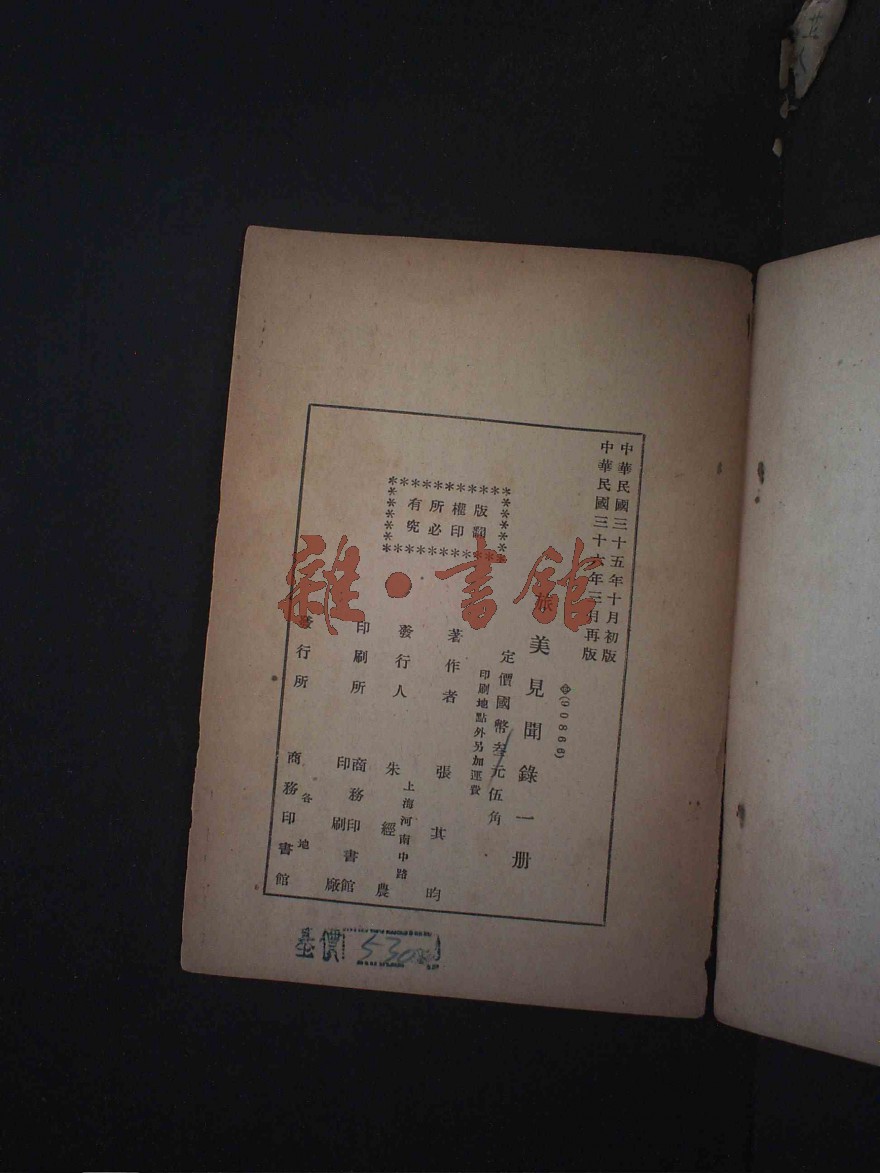 中華民國三十五年十月初版
中華民國三十六年三月再版
(90866)
旅美見聞錄一册
定價國幣叁元伍角
印刷地點外另加運費
版權所有
翻印必究
著作者 張其昀
發行人 朱經農
上海河南中路
印刷所 商務印書館印刷廠
發行所 各地商務印書館
雜·書館
基價